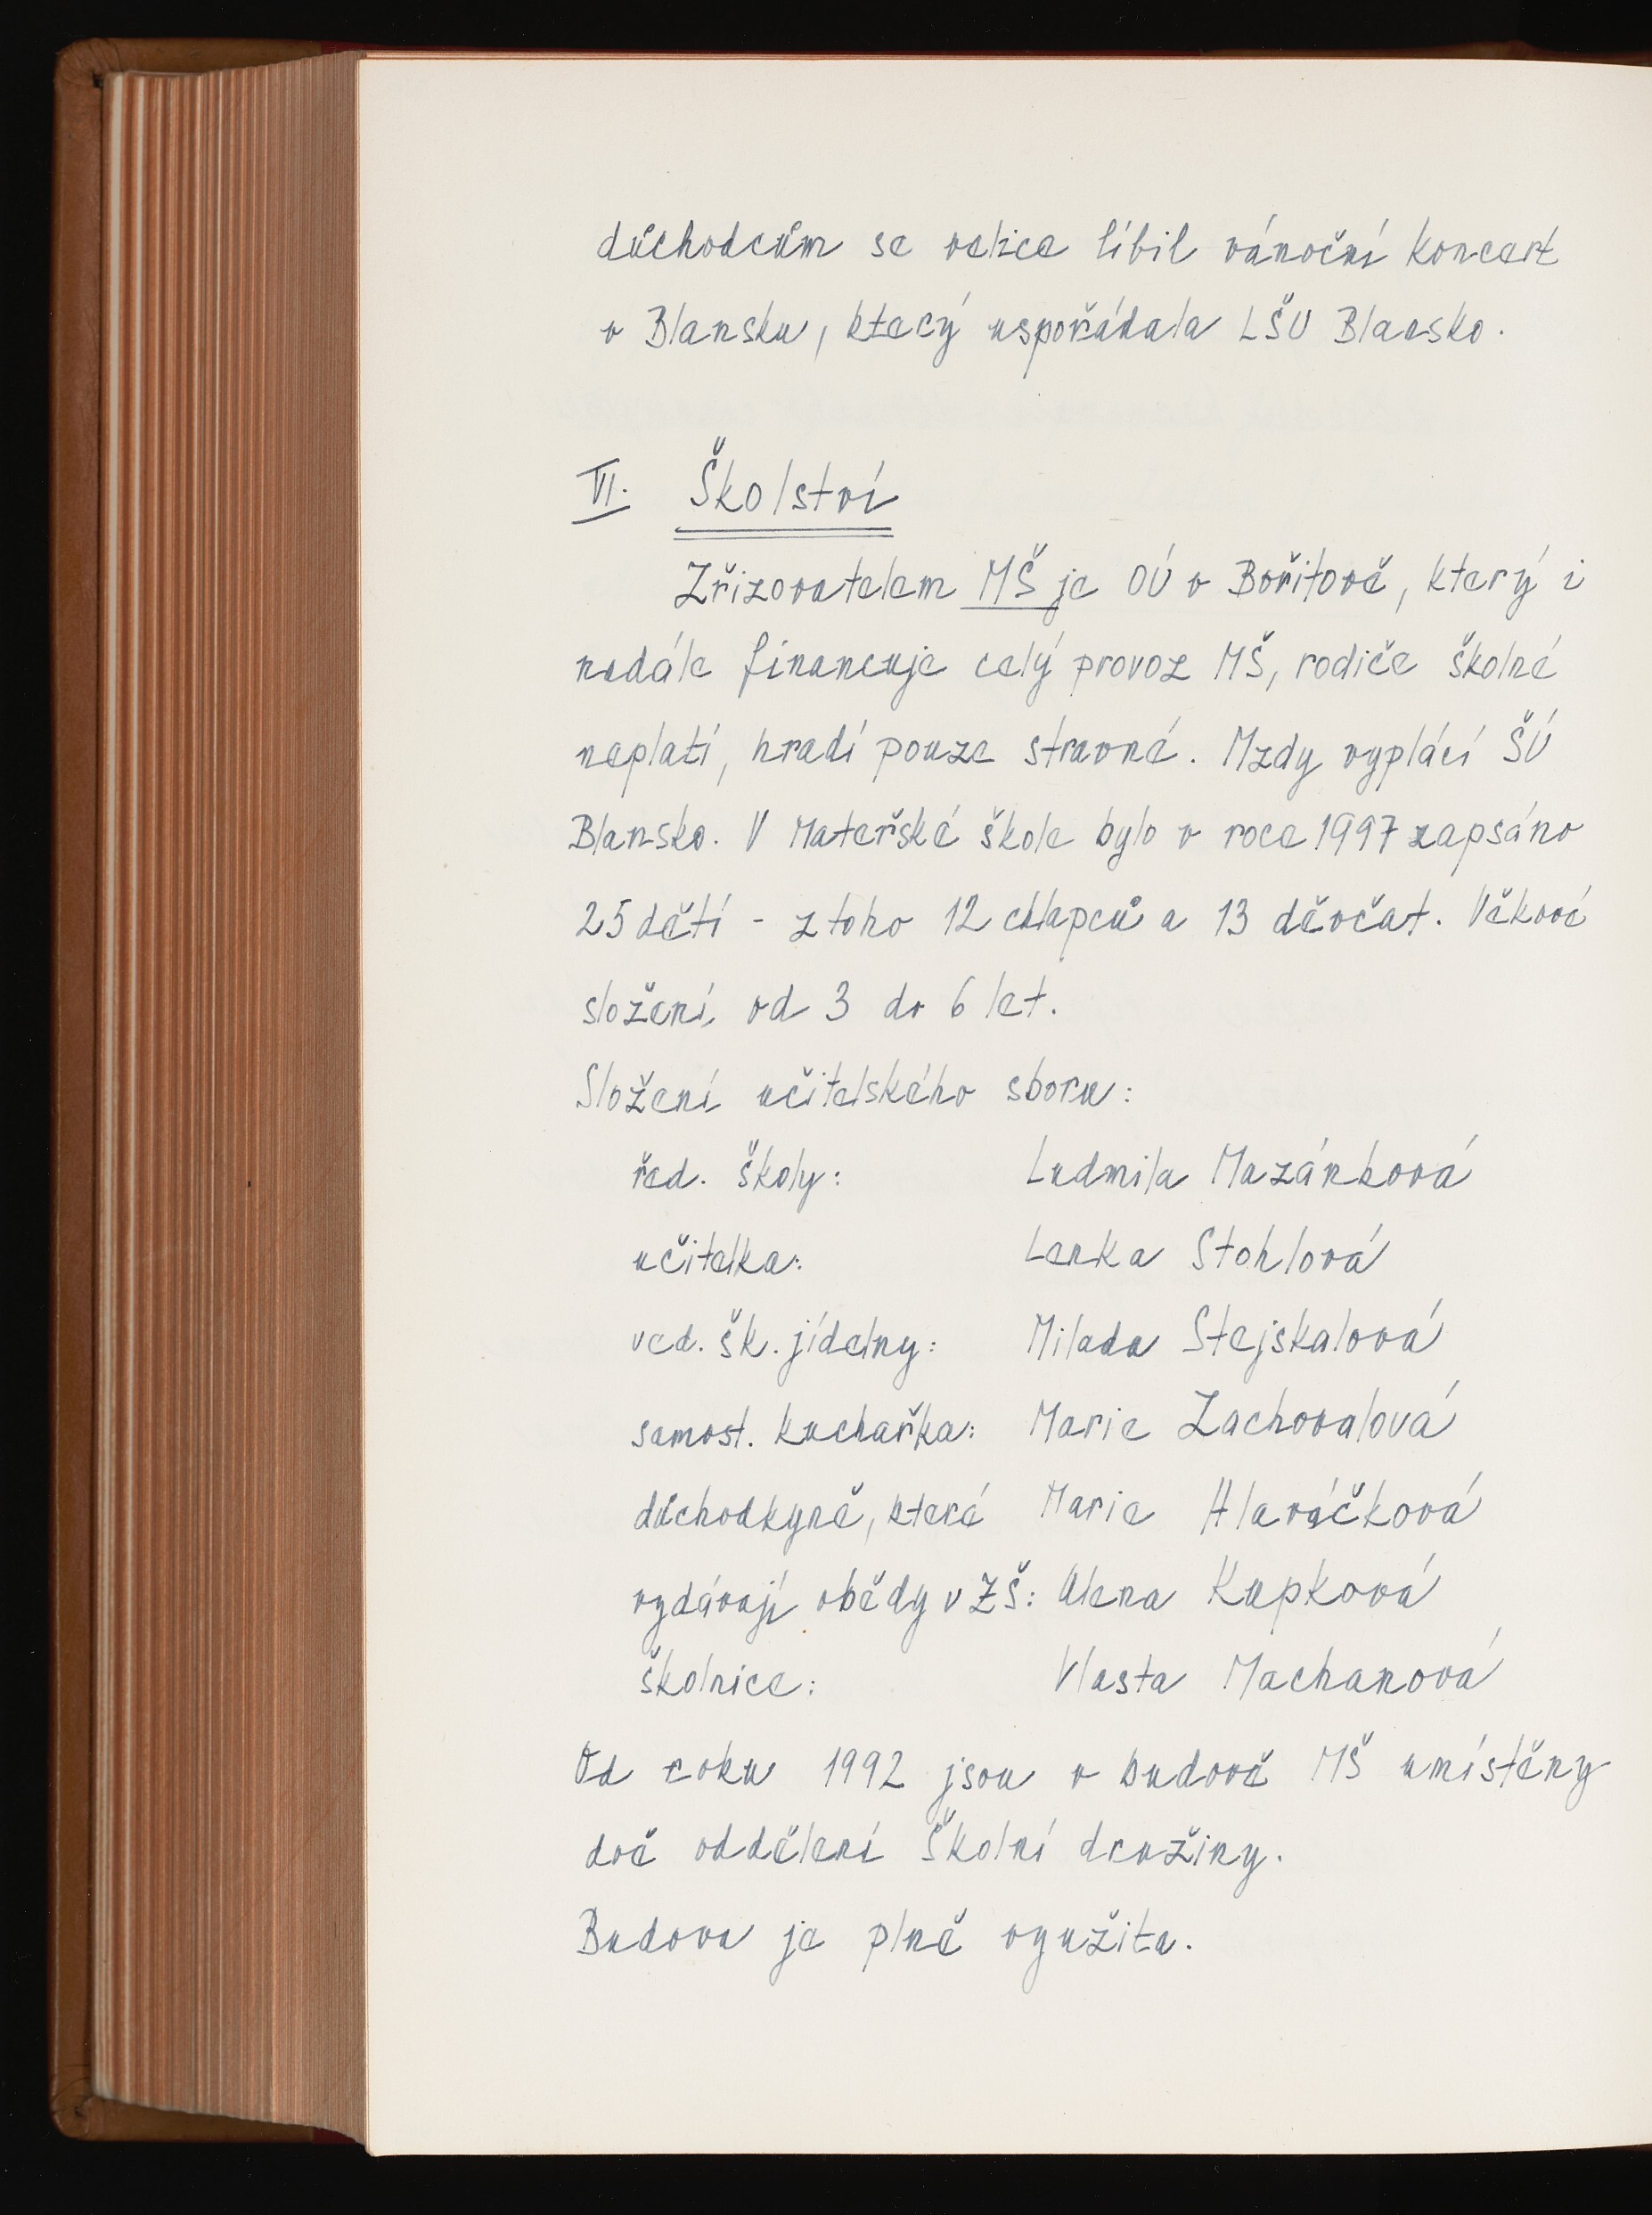 důchodcům se velice líbil vánoční koncert
v Blansku, který uspořádala LŠU Blansko.
VI. Školství
Zřizovatelem MŠ je OÚ v Bořitově, který i
nadále financuje celý provoz MŠ, rodiče školné
neplatí, hradí pouze stravné. Mzdy vyplácí ŠÚ
Blansko. V Mateřské škole bylo v roce 1997 zapsáno
25 dětí - z toho 12 chlapců a 13 děvčat. Věkové
složení, od 3 do 6 let.
Složení učitelského sboru:
řed. školy: Ludmila Mazánková
učitelka: Lenka Stohlová
ved. šk. jídelny: Milada Stejskalová
samost. kuchařka: Marie Zachovalová
důchodkyně, které Marie Hlaváčková
vydávají obědy v ZŠ: Alena Kupková
školnice: Vlasta Machanová
Od roku 1992 jsou v budově MŠ umístěny
dvě oddělení Školní družiny.
Budova je plně využita.